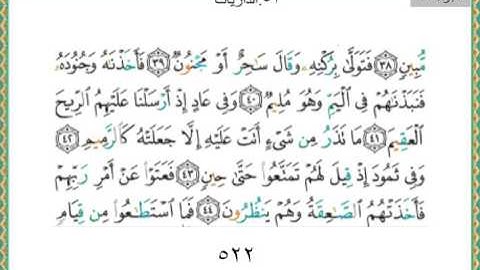 ٥١.الذاريات
مُّبِينٍ ٣٨ فَتَوَلَّىٰ بِرُكْنِهِۦ وَقَالَ سَٰحِرٌ أَوْ مَجْنُونٌ ٣٩ فَأَخَذْنَٰهُ وَجُنُودَهُۥ
فَنَبَذْنَٰهُمْ فِى ٱلْيَمِّ وَهُوَ مُلِيمٌ ٤٠ وَفِى عَادٍ إِذْ أَرْسَلْنَا عَلَيْهِمُ ٱلرِّيحَ
ٱلْعَقِيمَ ٤١ مَا تَذَرُ مِن شَىْءٍ أَتَتْ عَلَيْهِ إِلَّا جَعَلَتْهُ كَٱلرَّمِيمِ ٤٢
وَفِى ثَمُودَ إِذْ قِيلَ لَهُمْ تَمَتَّعُوا۟ حَتَّىٰ حِينٍ ٤٣ فَعَتَوْا۟ عَنْ أَمْرِ رَبِّهِمْ
فَأَخَذَتْهُمُ ٱلصَّٰعِقَةُ وَهُمْ يَنظُرُونَ ٤٤ فَمَا ٱسْتَطَٰعُوا۟ مِن قِيَامٍ
٥٢٢